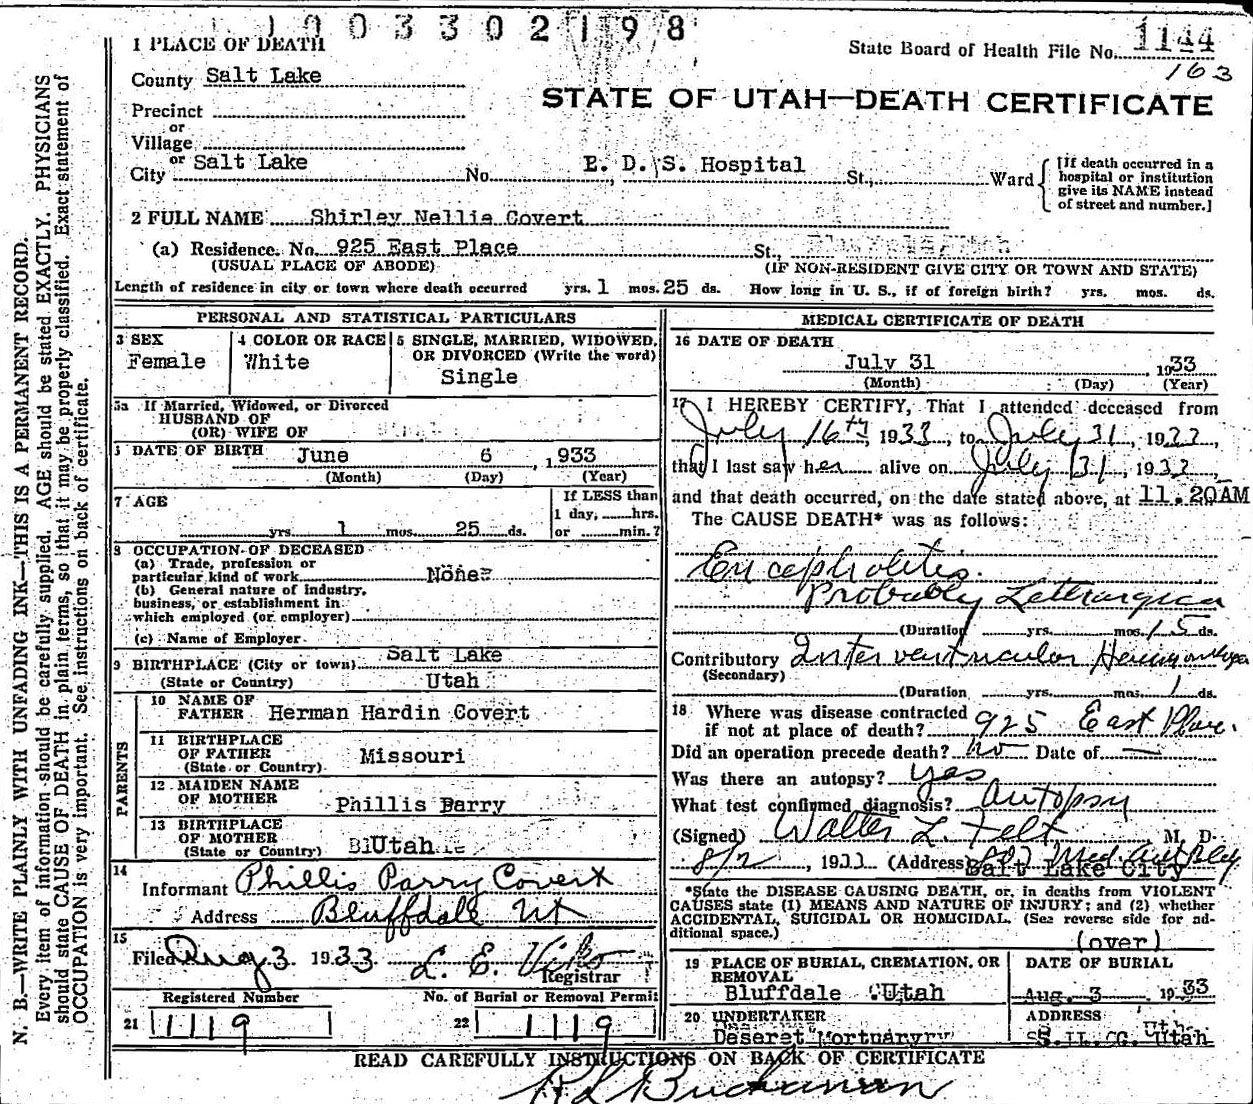 1003302198
1144
State Board of Health File No.
163
STATE OF UTAH—DEATH CERTIFICATE
1 PLACE OF DEATH
County Salt Lake
Precinct
or
Village
or
City Salt Lake No. E. D. S. Hospital St., Ward
[If death occurred in a
hospital or institution
give its NAME instead
of street and number.]
2 FULL NAME Shirley Nellie Covert
(a) Residence. No. 925 East Place St.,
(USUAL PLACE OF ABODE) (IF NON-RESIDENT GIVE CITY OR TOWN AND STATE)
Length of residence in city or town where death occurred yrs. 1 mos. 25 ds. How long in U. S., if of foreign birth? yrs. mos. ds.
PERSONAL AND STATISTICAL PARTICULARS
3 SEX
Female
4 COLOR OR RACE
White
5 SINGLE, MARRIED, WIDOWED,
OR DIVORCED (Write the word)
Single
5a If Married, Widowed, or Divorced
HUSBAND OF
(OR) WIFE OF
DATE OF BIRTH June 6, 1933
(Month) (Day) (Year)
7 AGE
yrs. 1 mos. 25 ds.
If LESS than
1 day, hrs.
or min.?
8 OCCUPATION OF DECEASED
(a) Trade, profession or
particular kind of work None
(b) General nature of industry,
business, or establishment in
which employed (or employer)
(c) Name of Employer
9 BIRTHPLACE (City or town) Salt Lake
(State or Country) Utah
PARENTS
10 NAME OF
FATHER Herman Hardin Covert
11 BIRTHPLACE
OF FATHER Missouri
(State or Country)
12 MAIDEN NAME
OF MOTHER Phillis Parry
13 BIRTHPLACE
OF MOTHER Utah
(State or Country)
14
Informant Phillis Parry Covert
Address Bluffdale Ut
15
Filed Aug 3 1933 L. E.
Registrar
Registered Number No. of Burial or Removal Permit
21 1119 22 1119
MEDICAL CERTIFICATE OF DEATH
16 DATE OF DEATH
July 31, 1933
(Month) (Day) (Year)
17 I HEREBY CERTIFY, That I attended deceased from
July 16th, 1933, to July 31, 1933,
that I last saw her alive on July 31, 1933,
and that death occurred, on the date stated above, at 11.20AM
The CAUSE DEATH* was as follows:
Encepholitis.
Probably Lethargica
(Duration yrs. mos. 15 ds.
Contributory Interventricular
(Secondary)
(Duration yrs. mos. 1 ds.
18 Where was disease contracted
if not at place of death? 925 East Place.
Did an operation precede death? no Date of —
Was there an autopsy? yes
What test confirmed diagnosis? Autopsy
(Signed) Walter L. Felt M. D.
8/2, 1933 (Address) Med. Art Bldg
Salt Lake City
*State the DISEASE CAUSING DEATH, or, in deaths from VIOLENT
CAUSES state (1) MEANS AND NATURE OF INJURY; and (2) whether
ACCIDENTAL, SUICIDAL OR HOMICIDAL. (See reverse side for ad-
ditional space.)
(over)
19 PLACE OF BURIAL, CREMATION, OR
REMOVAL
Bluffdale Utah
DATE OF BURIAL
Aug. 3 1933
20 UNDERTAKER
Deseret Mortuary
ADDRESS
S. L. C. Utah
READ CAREFULLY INSTRUCTIONS ON BACK OF CERTIFICATE
R L Buchanan
N. B.—WRITE PLAINLY WITH UNFADING INK—THIS IS A PERMANENT RECORD.
Every item of information should be carefully supplied. AGE should be stated EXACTLY. PHYSICIANS
should state CAUSE OF DEATH in plain terms, so that it may be properly classified. Exact statement of
OCCUPATION is very important. See instructions on back of certificate.